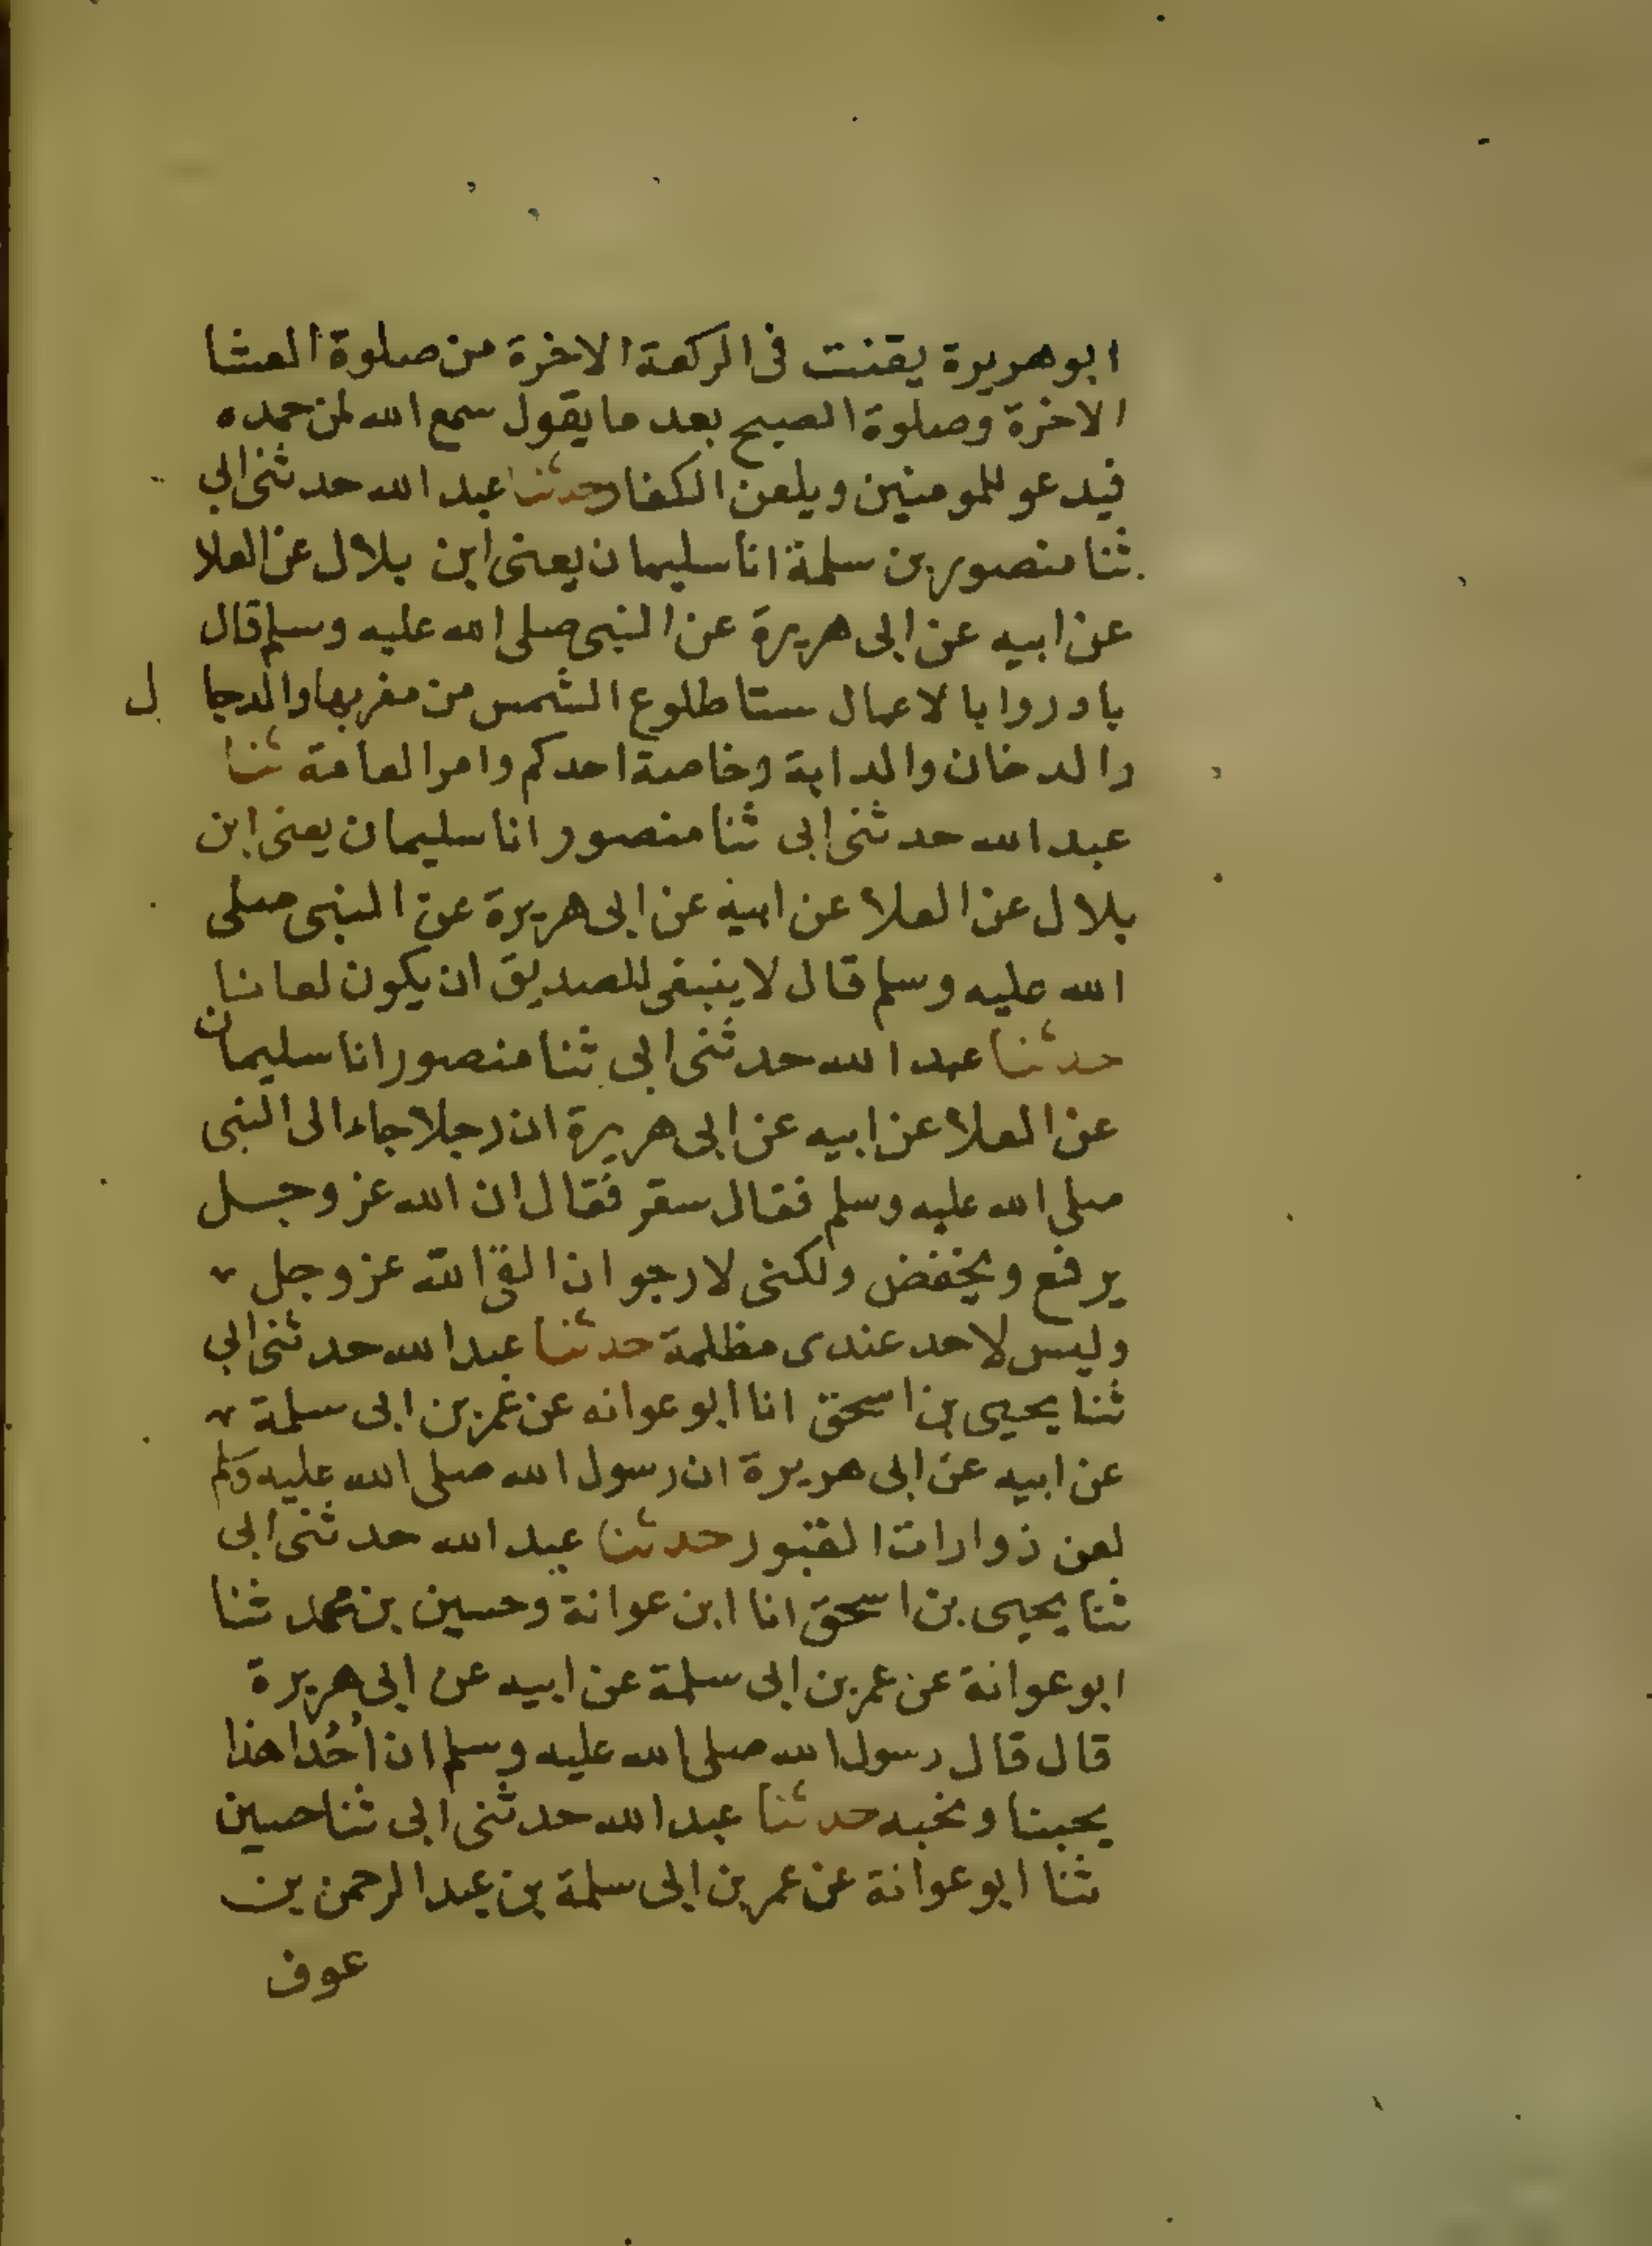 ابو هريرة يقنت فى الركعة الاخرة من صلوة العشا
الاخرة وصلوة الصبح بعد ما يقول سمع الله لمن حمده
فيدعو للمومنين ويلعن الكفار حدثنا عبد الله حدثنى ابي
ثنا منصور بن سلمة انا سليمان يعنى ابن بلال عن العلا
عن ابيه عن ابى هريرة عن النبى صلى الله عليه وسلم قال
بادروا بالاعمال ستا طلوع الشمس من مغربها والدجال
والدخان والدابة وخاصة احدكم وامر العامة ثنا
عبد الله حدثنى ابى ثنا منصور انا سليمان يعنى ابن
بلال عن العلا عن ابيه عن ابى هريرة عن النبى صلى
الله عليه وسلم قال لا ينبغى للصديق ان يكون لعانا
حدثنا عبد الله حدثنى ابى ثنا منصور انا سليمان
عن العلا عن ابيه عن ابى هريرة ان رجلا جاء الى النبى
صلى الله عليه وسلم فقال سعر فقال ان الله عز وجل
يرفع ويخفض ولكنى لارجو ان القى الله عز وجل
وليس لاحد عندى مظلمة حدثنا عبد الله حدثنى ابي
ثنا يحيى بن اسحق انا ابو عوانه عن عمر بن ابى سلمة
عن ابيه عن ابى هريرة ان رسول الله صلى الله عليه وسلم
لعن زوارات القبور حدثنا عبد الله حدثنى ابى
ثنا يحيى بن اسحق انا ابن عوانة وحسين بن محمد ثنا
ابو عوانة عن عمر بن ابى سلمة عن ابيه عن ابى هريرة
قال قال رسول الله صلى الله عليه وسلم ان اُحُدا هذا
يحبنا ونحبه حدثنا عبد الله حدثنى ابى ثنا حسين
ثنا ابو عوانة عن عمر بن ابى سلمة بن عبد الرحمن بن
عوف